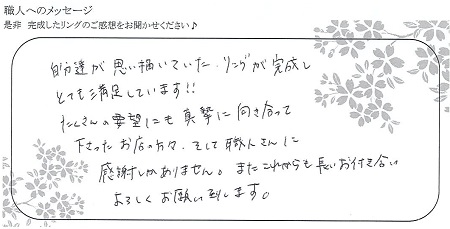 職人へのメッセージ
是非 完成したリングのご感想をお聞かせください♪
自分達が思い描いていた、リングが完成し
とても満足しています!!
たくさんの要望にも真摯に向き合って
下さったお店の方々、そして職人さんに
感謝しかありません。またこれからも長いお付き合い
よろしくお願い致します。